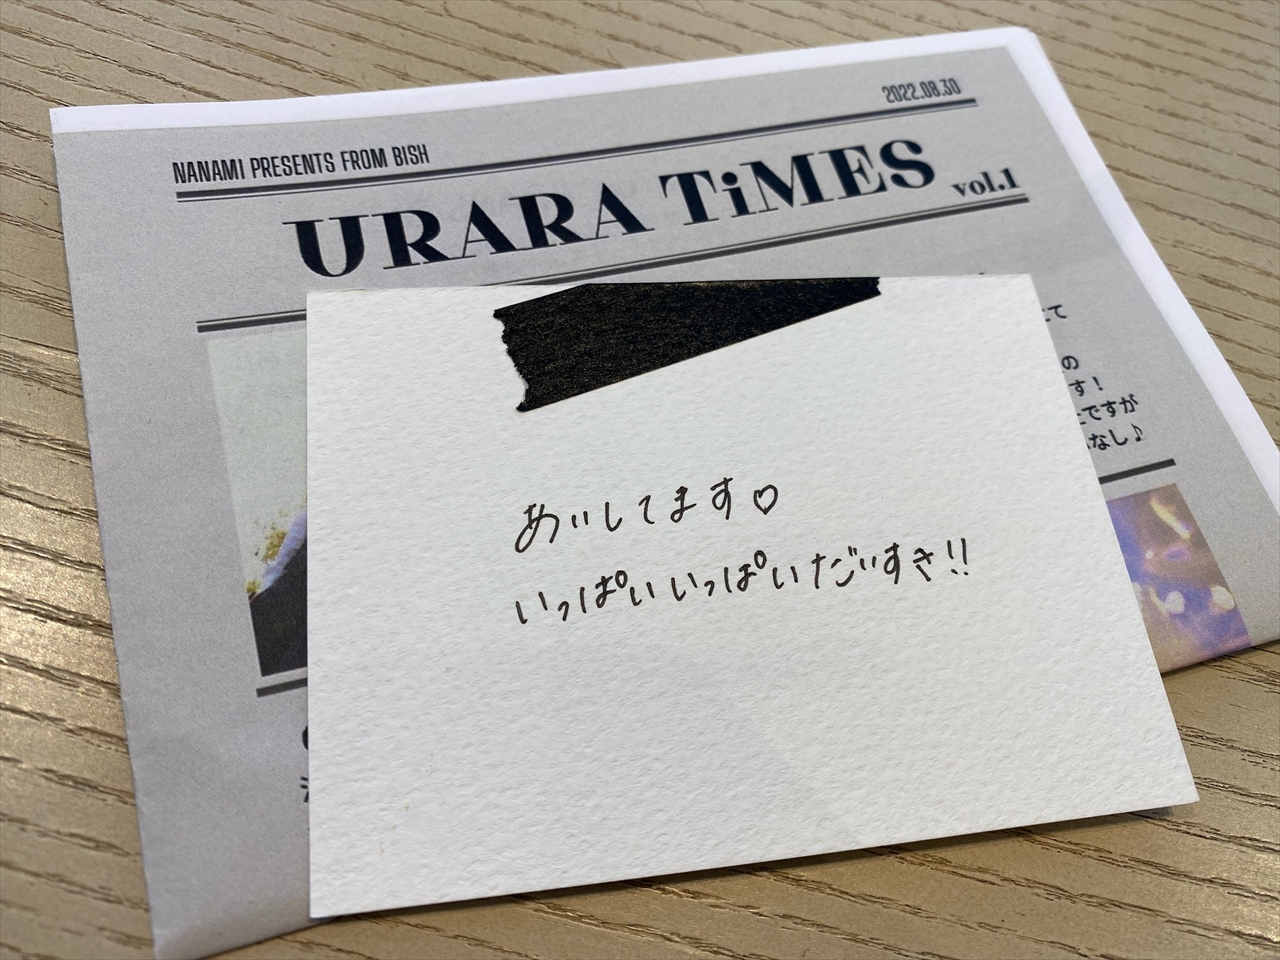 2022.08.30
NANAMI PRESENTS FROM BISH
URARA TiMES vol.1
の
す!
ですが
なし♪
あいしてます♡
いっぱいいっぱいだいすき!!